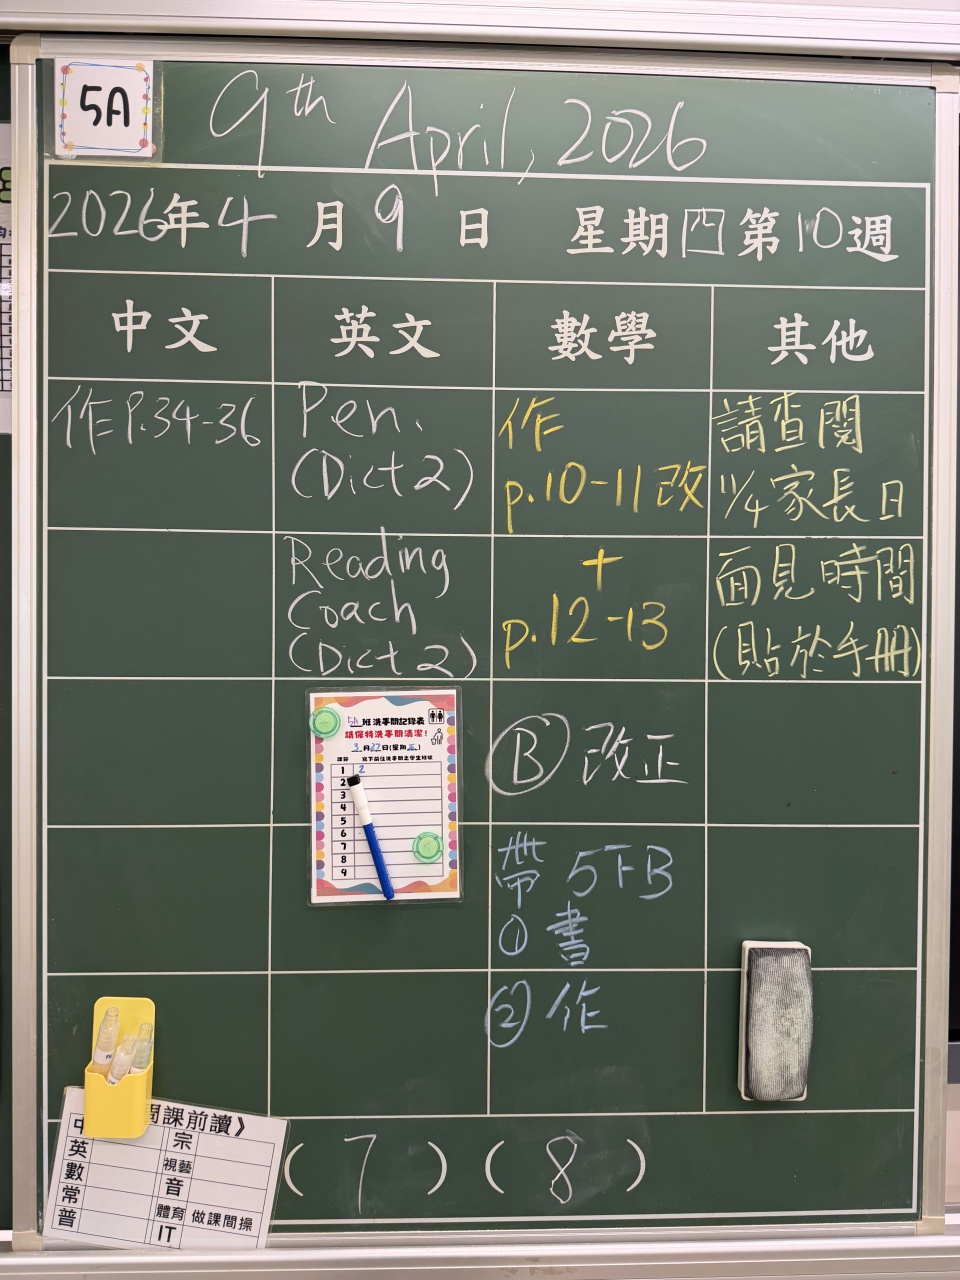 5A
9th April, 2026
2026年4月9日 星期四第10週
中文 英文 數學 其他
作P.34-36
Pen.
(Dict 2)
Reading
Coach
(Dict 2)
作
p.10-11改
+
p.12-13
Ⓑ 改正
帶 5下B
① 書
② 作
請查閱
11/4家長日
面見時間
(貼於手冊)
5A班洗手間記錄表
請保持洗手間清潔!
3月27日(星期五)
課節 寫下前往洗手間之學生班號
1 2
2
3
4
5
6
7
8
9
間課前讀》
中 宗
英 視藝
數 音
常 體育 做課間操
普 IT
(7)(8)